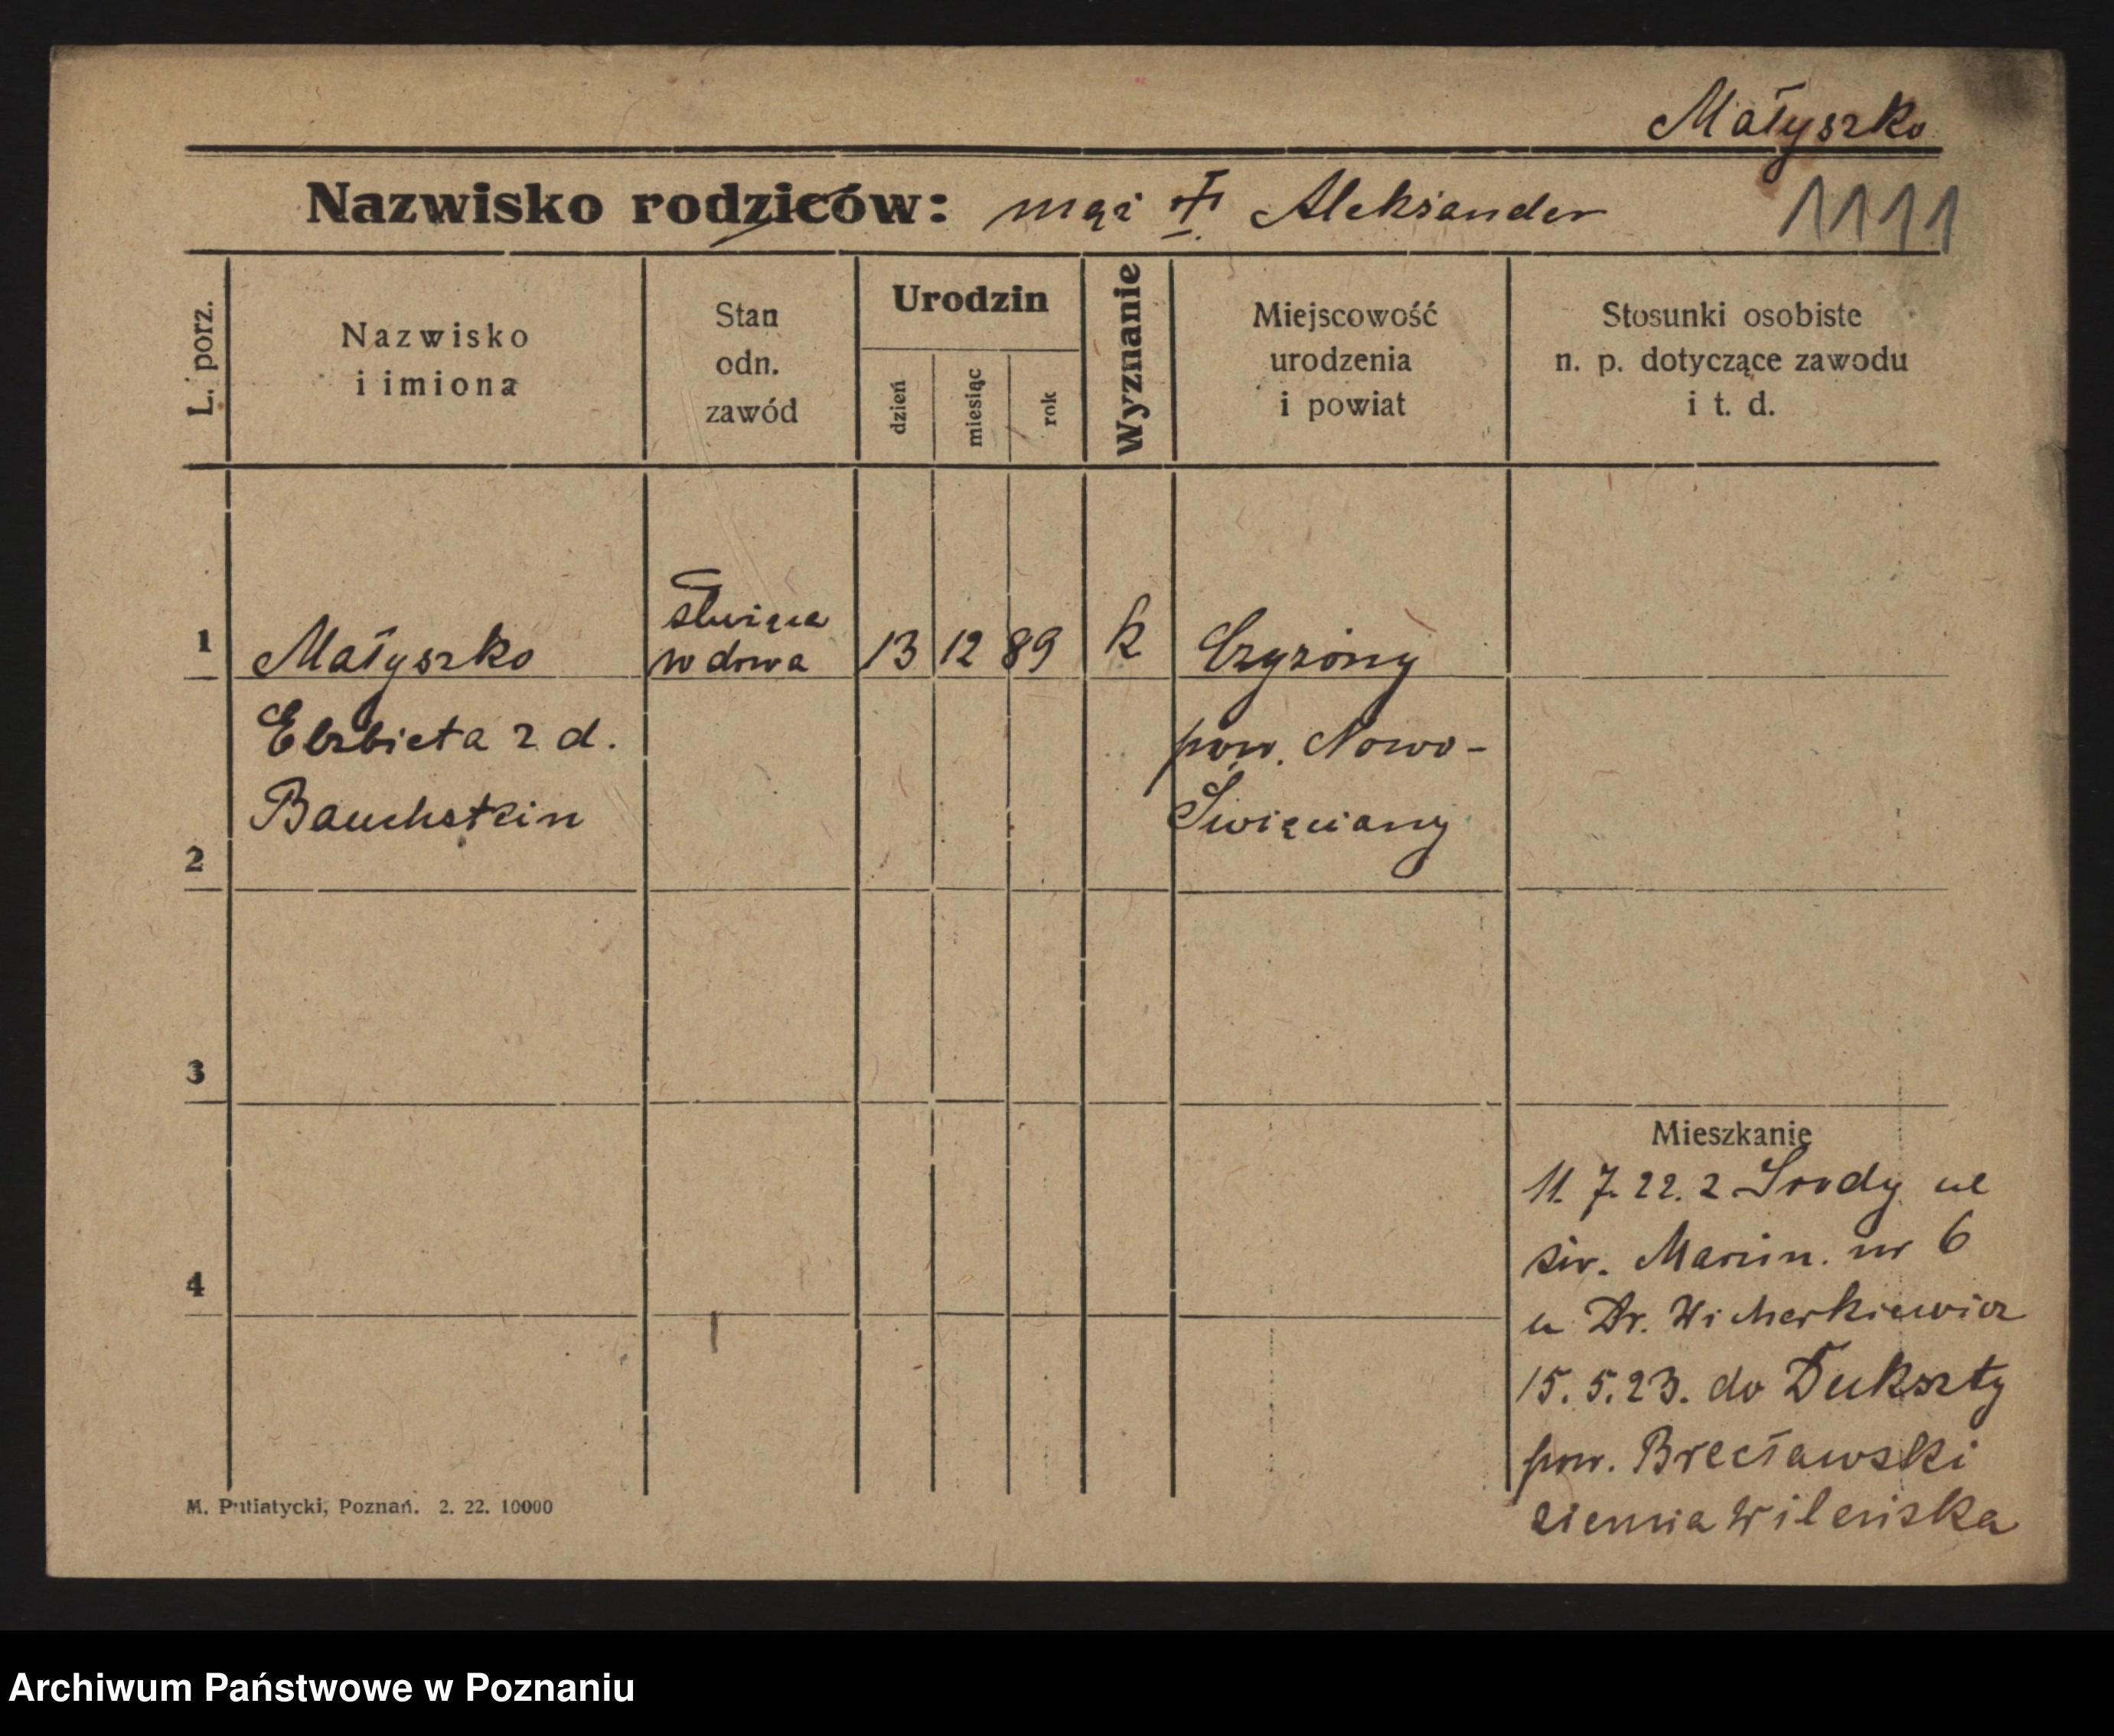 Małyszko
Nazwisko rodziców: mąż † Aleksander
1111
L. porz.
Nazwisko
i imiona
Stan
odn.
zawód
Urodzin
dzień
miesiąc
rok
Wyznanie
Miejscowość
urodzenia
i powiat
Stosunki osobiste
n. p. dotyczące zawodu
i t. d.
1
Małyszko
Elżbieta z d.
Bauchstein
służąca
wdowa
13 12 89
k
Czyżony
pow. Nowo-
Święciany
2
3
4
Mieszkanie
11. 7. 22. z Środy ul
św. Marcin. nr 6
u Dr. Wicherkiewicz
15. 5. 23. do Dukszty
pow. Brecławski
ziemia Wileńska
M. Putiatycki, Poznań. 2. 22. 10000
Archiwum Państwowe w Poznaniu